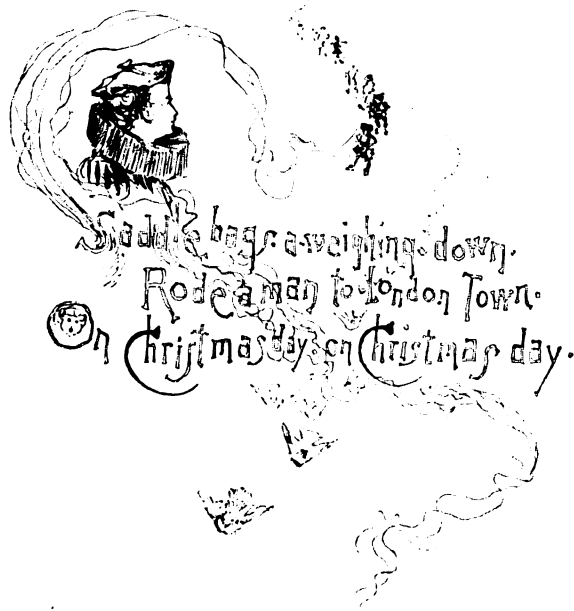 Saddle bags·a·weighing·down·
Rode a man to·London Town·
On Christmas day·on Christmas day·